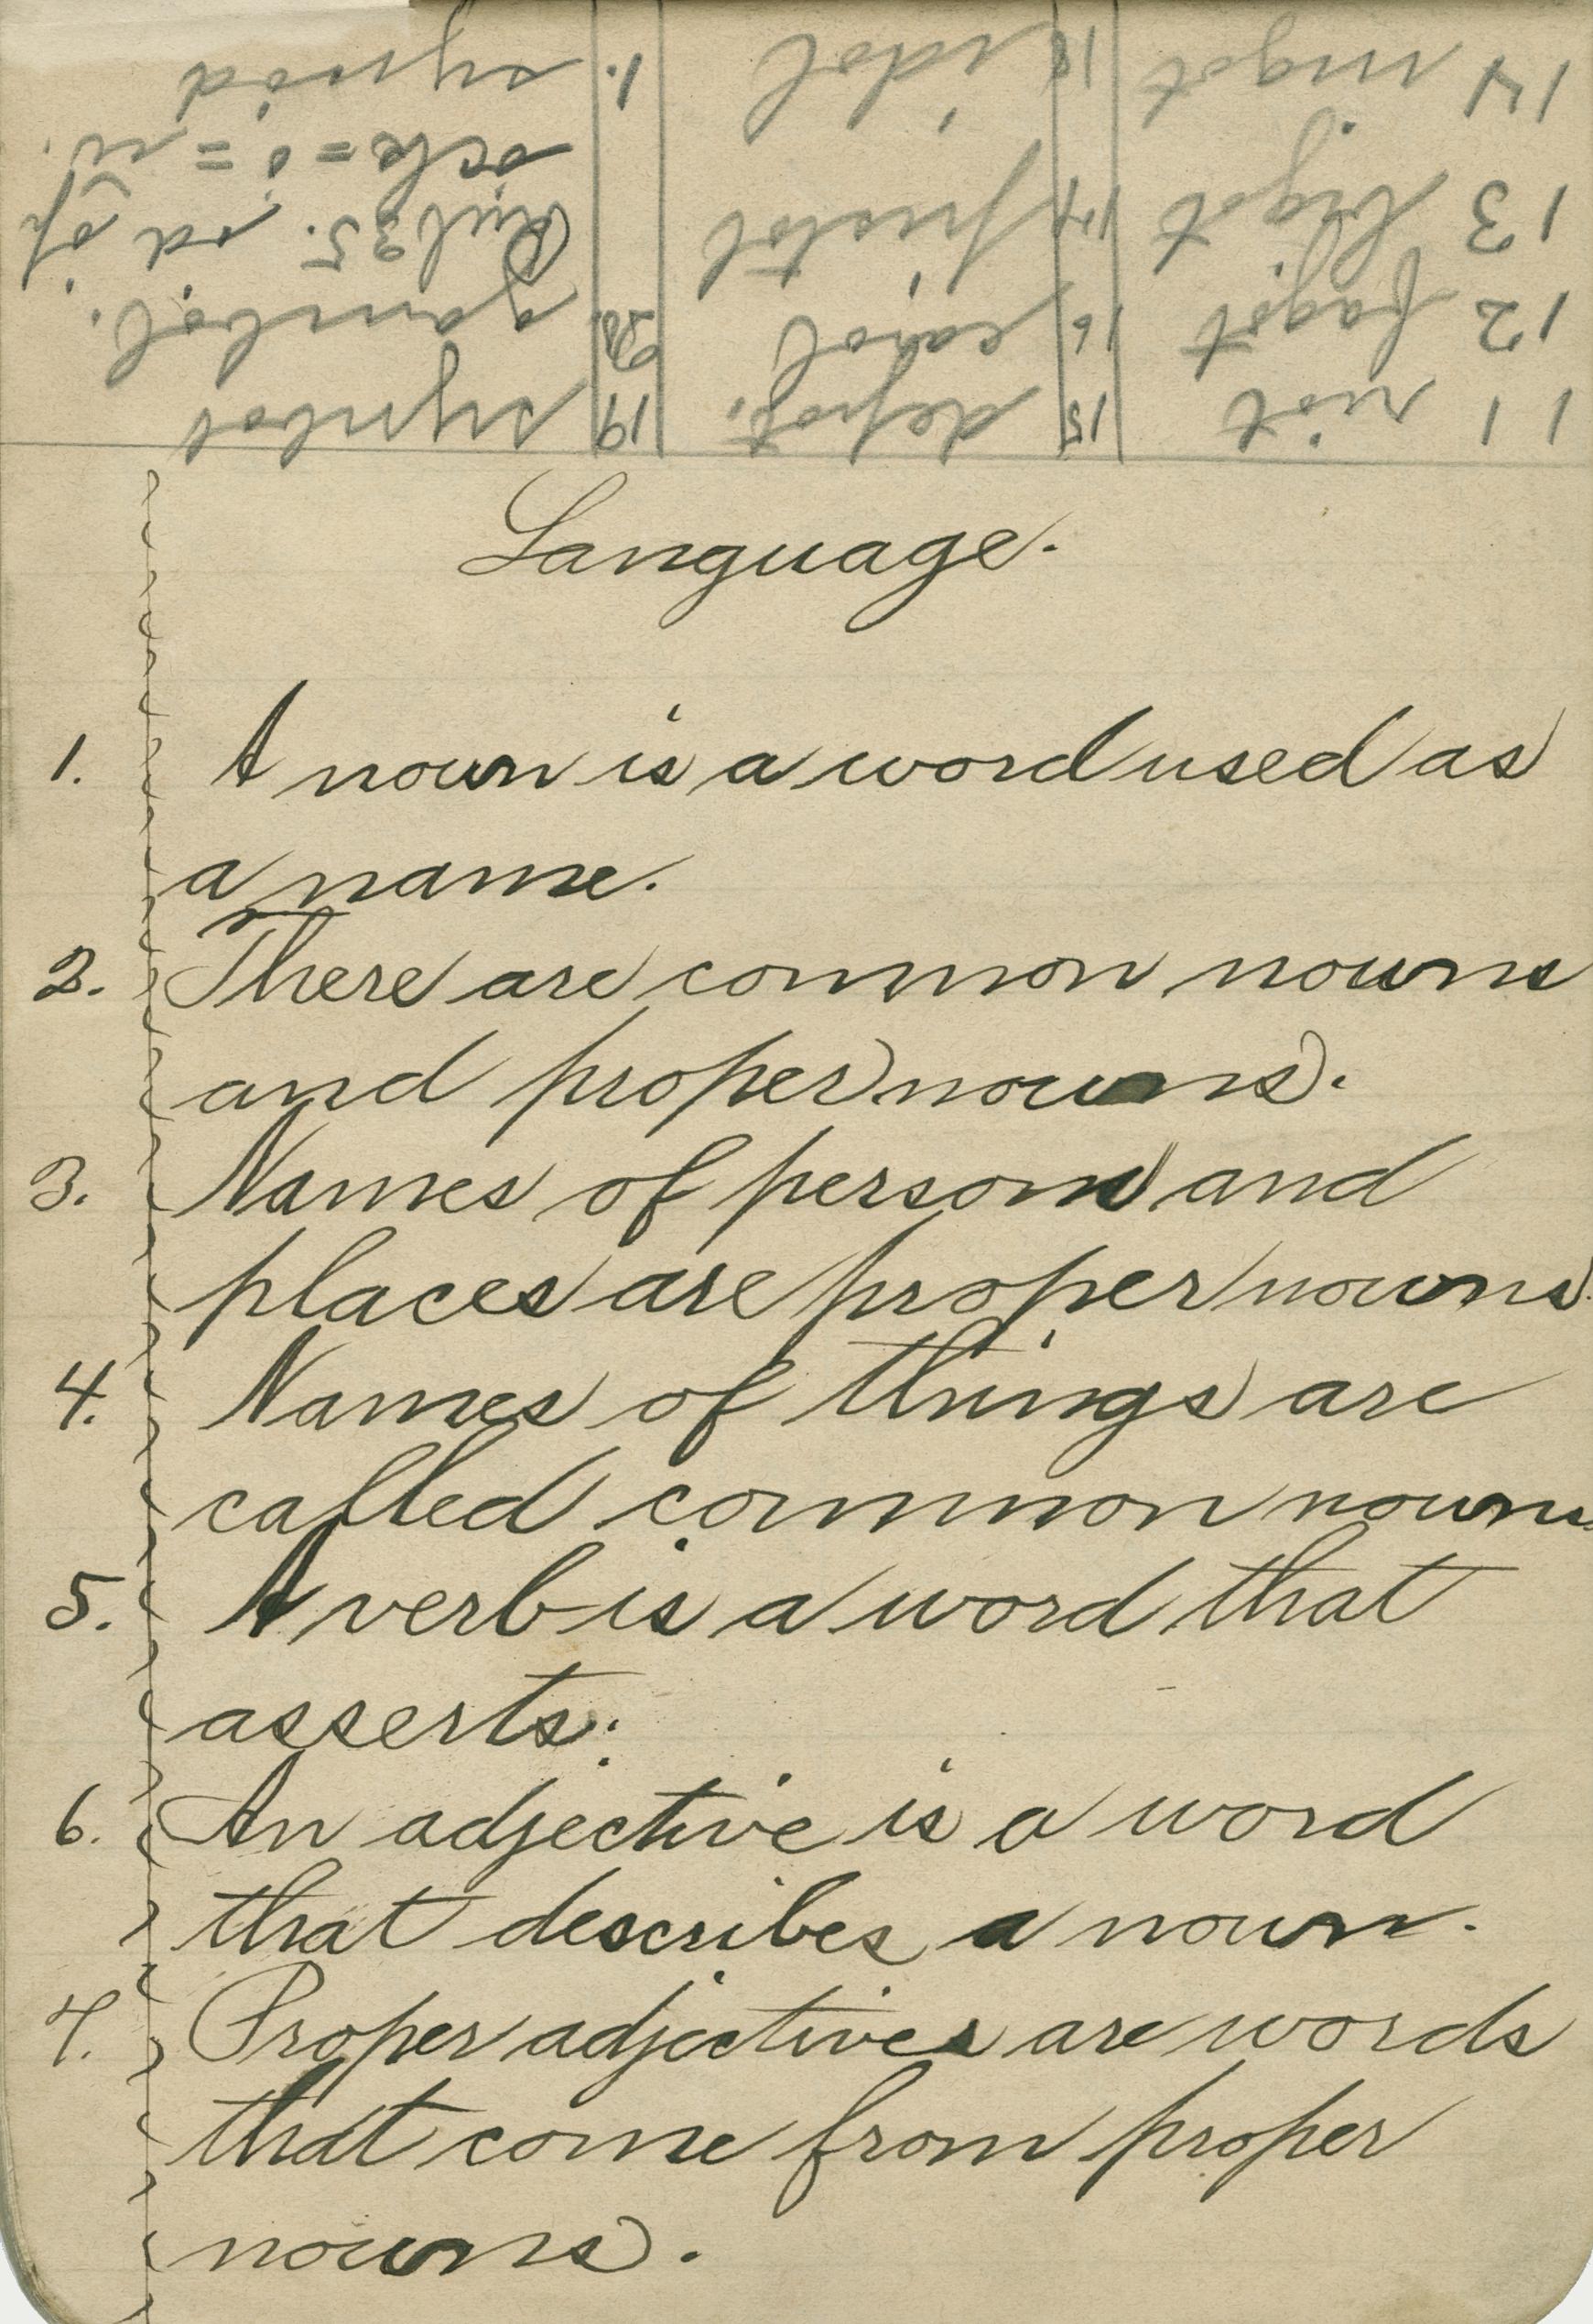 11 riot 15 depot. 19 symbol
12 fagot 16 carol 20. gambol.
13 bigot 17 pistol 35. od of
ock = o = u.
14 ingot 18 idol 1. synod
Language.
1. A noun is a word used as
a name.
2. There are common nouns
and proper nouns.
3. Names of persons and
places are proper nouns.
4. Names of things are
called common nouns.
5. A verb is a word that
asserts.
6. An adjective is a word
that describes a noun.
7. Proper adjectives are words
that come from proper
nouns.